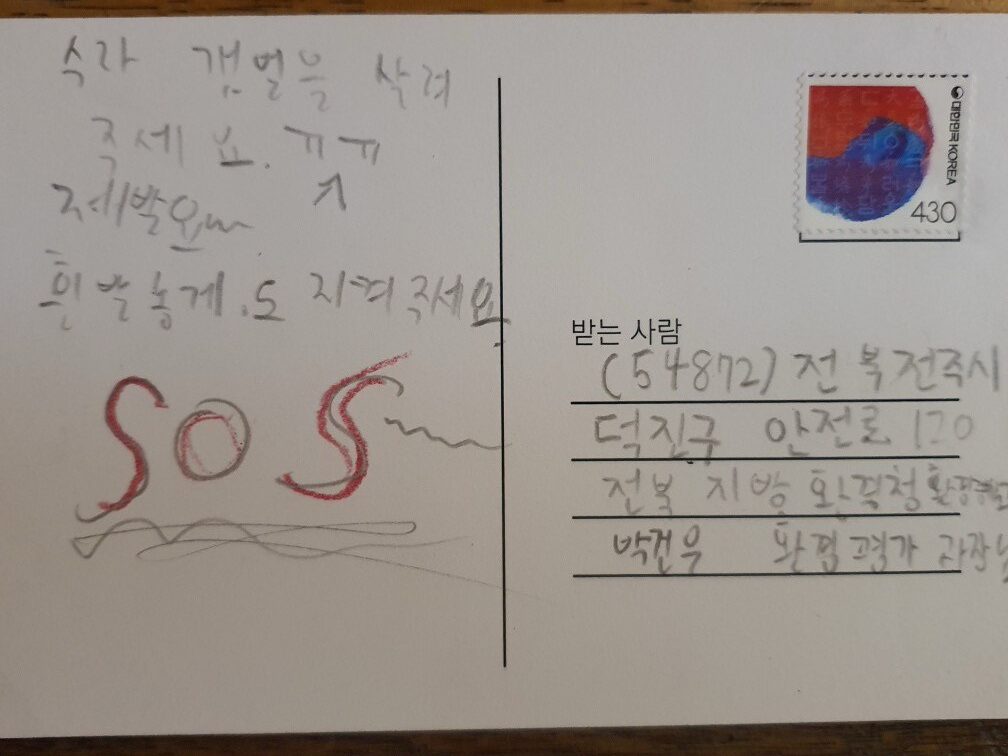 수라 갯벌을 살려
주세요. ㅠㅠ
제발요~~
흰발농게.도 지켜주세요
SOS
대한민국 KOREA
430
받는 사람
(54872) 전북 전주시
덕진구 안전로 120
전북 지방 환경청
박건우 환경평가 과장님